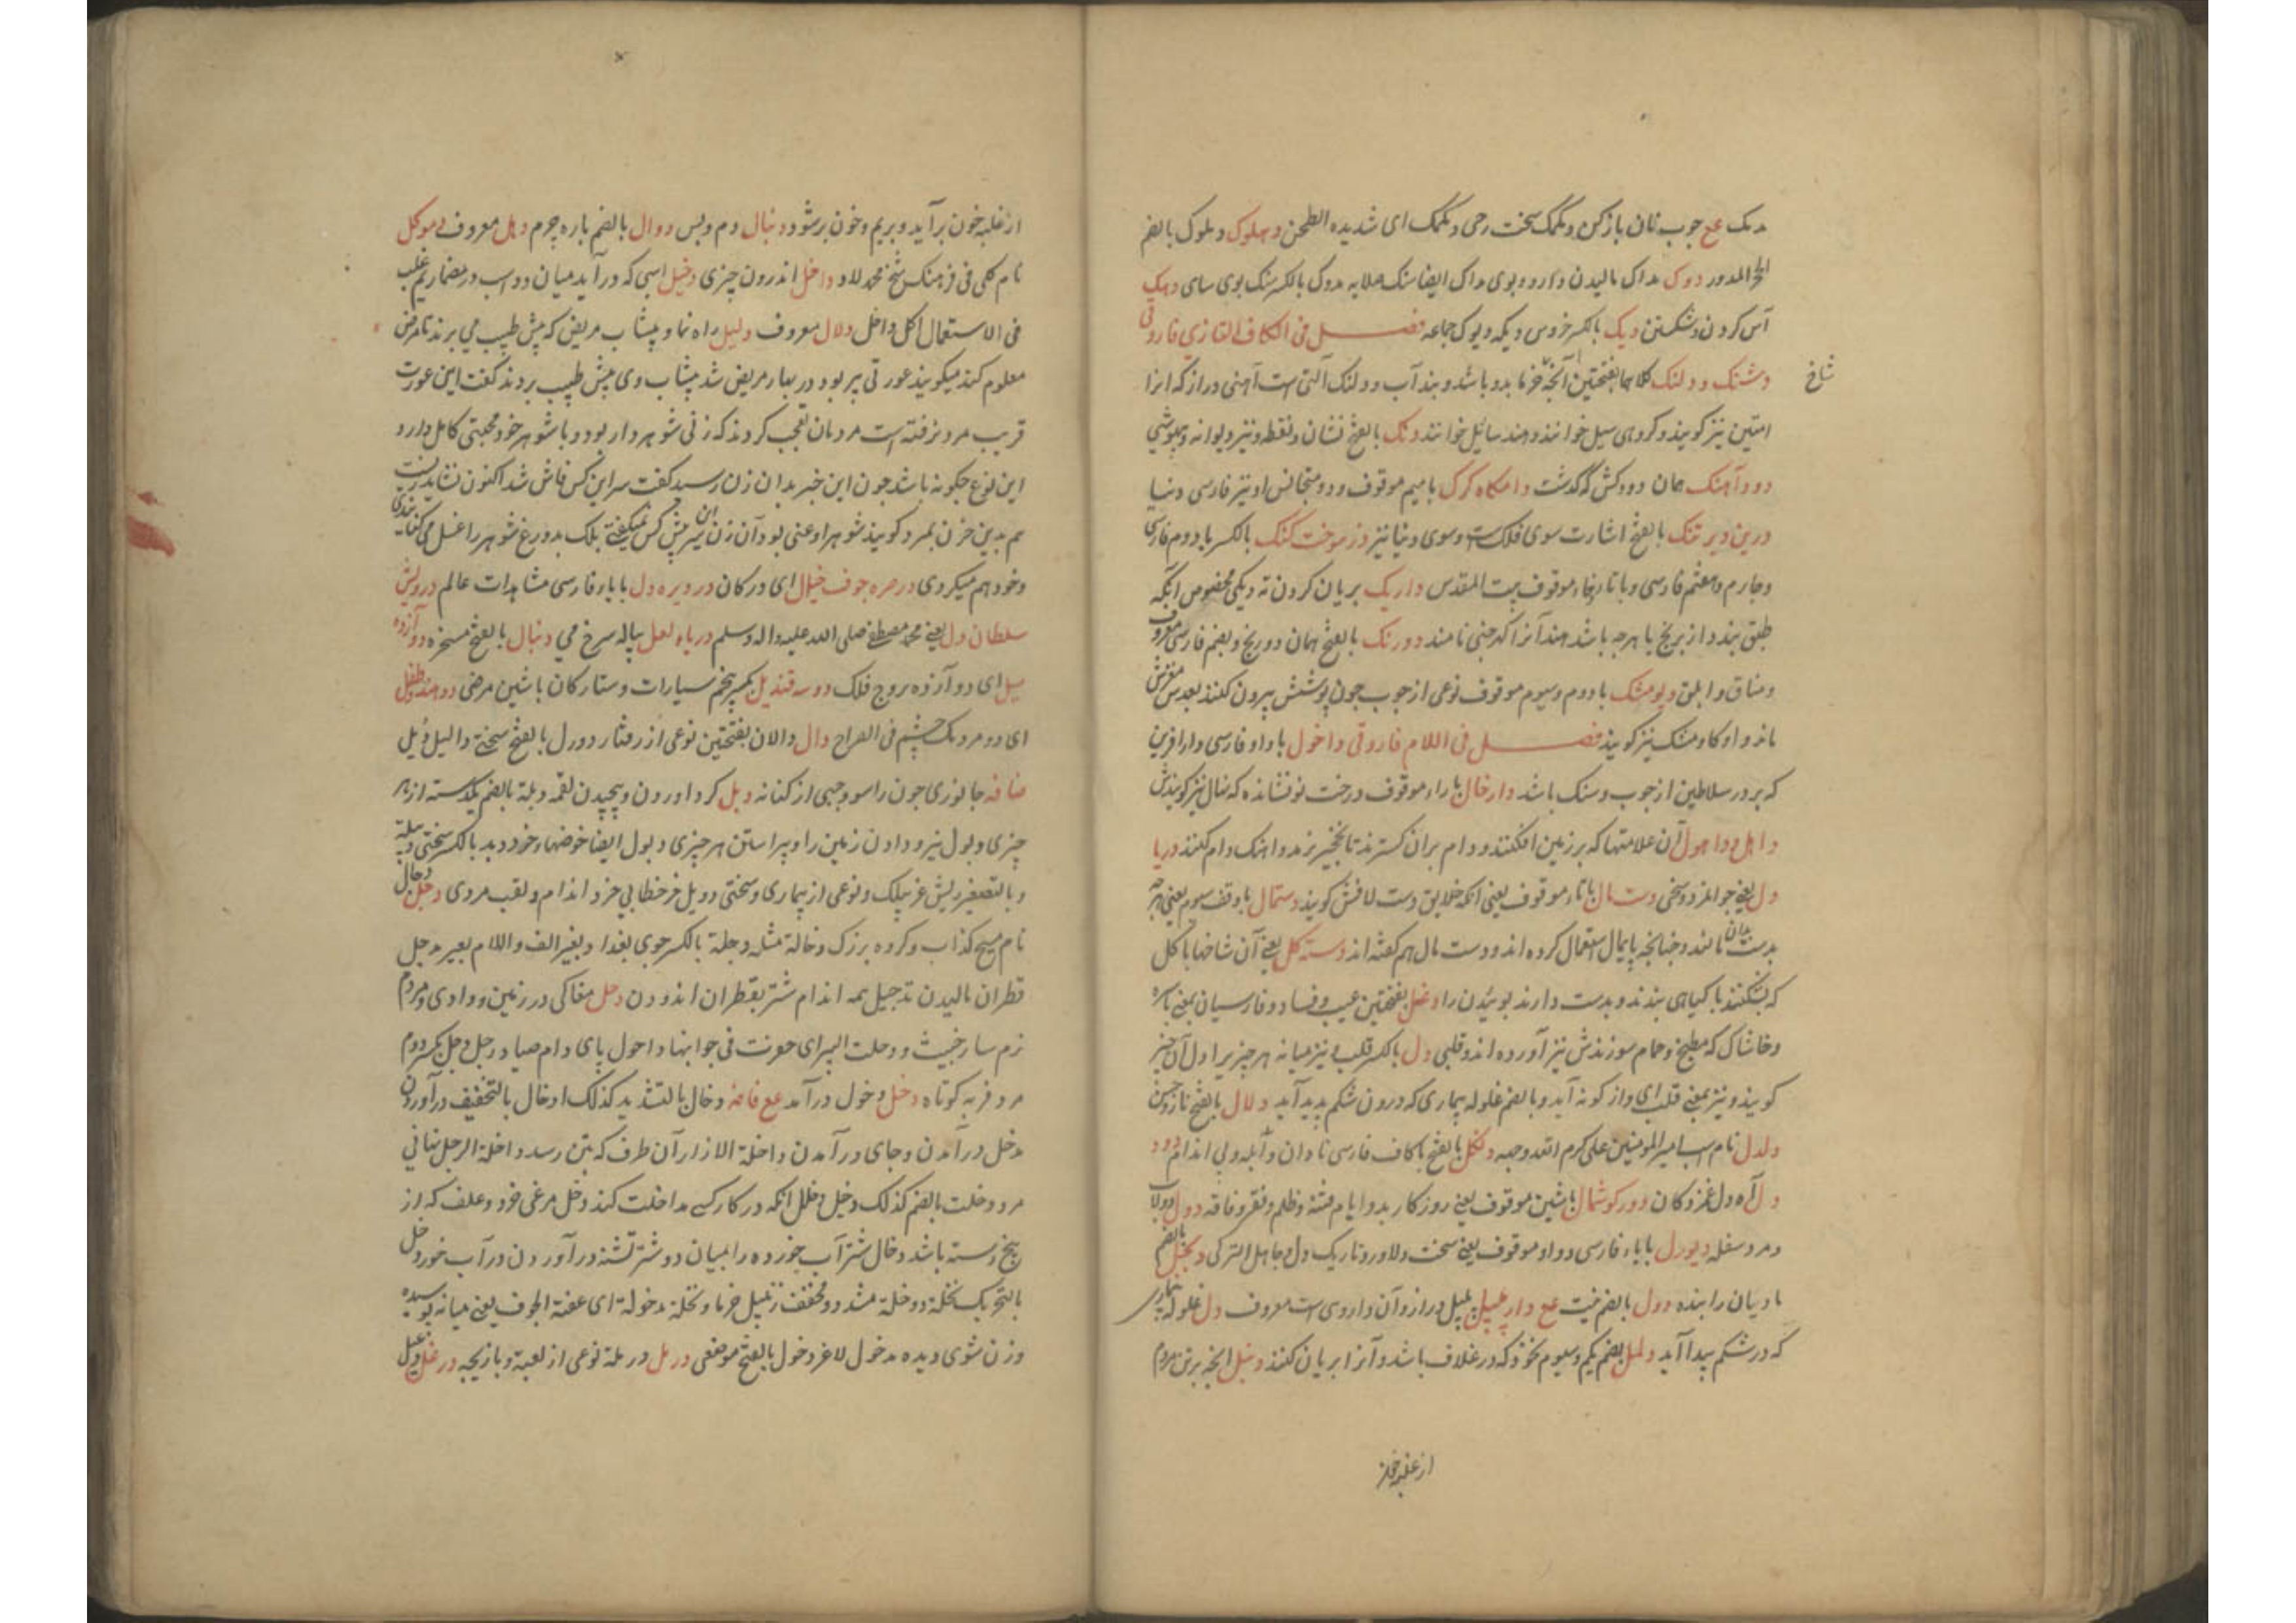 مدمک عع چوب نان بازکن و دمکمک سخت رحی دمکمک ای شدیده الطحن دهلوک و دملوک بالضم
المدور دوک مداک مالیدن دارو و بوی مداک ایضا سنک صلایه مدوک بالکسر سنک بوی سای دهک
آس کردن و شکستن دیک بالکسر خروس دیکه و دیوک جماعه فصل فی الکاف القازی فاروقی
دشتک و دولنک کلاهما بفتحتین آنچه خرما بدو باشد و بند آب و دولنک آلتی است آهنی دراز که انرا
شاخ
امتین نیز کویند و کروهی سیل خوانند و هند سائیل خوانند دنک بالفتح نشان و نقطه و نیز دیوانه و بیهوشی
دودآهنک همان دودکش که کذشت دامکاه کرک با میم موقوف و دو متجانس او نیز فارسی دنیا
درین دیر تنک بالفتح اشارت سوی فلک است و سوی دنیا نیز دزموخت کنک بالکسر با دوم فارسی
و چارم و هفتم فارسی و با تا و خاء موقوف بیت المقدس داریک بریان کردن ته دیکی مخصوص انکه
طبق بندد از برنج یا هرچه باشد هند آنرا کهرجنی نامند دورنک بالفتح همان دورنج و بضم فارسی معروف
و منافق و ابلق دیومشک با دوم و سیوم موقوف نوعی از چوب چون پوستش بیرون کنند بعدس مقرش
ماند و او کاومشک نیز کویند فصل فی اللام فاروقی داخول با واو فارسی دارافرین
که بر در سلاطین از چوب و سنک باشد دارخال با راء موقوف درخت نو نشانده که نهال نیز کویندش
داهل و داهول آن علامتها که بر زمین افکنند و دام بران کسترند تا نخجیر برمد و اهنک دام کنند دریا
دل یعنی جوانمرد و سخی دستمال با تاء موقوف یعنی انکه خلایق دست لافش کویند دستمال با وقف سیوم یعنی هرچه
بدست بدان مالند و چنانچه پایمال استعمال کرده اند و دست مال هم کفته اند دسته کل یعنی آن شاخها با کل
که بشکنند با کیاهی بندند و بدست دارند بوئیدن را دغل بفتحتین عیب و فساد و فارسیان بمعنی پاره
و خاشاک که مطبخ و حمام سوزندش نیز آورده اند و قلبی دل بالکسر قلب و نیز میانه هرچیز برا دل آن چیز
کویند و نیز بمعنی قلب ای واژ کونه آید و بالضم غلوله بیماری که درون شکم پدید آید دلال بالفتح ناز و حسن
دلدل نام اسب امیر المومنین علی کرم الله وجهه دنکل بالفتح با کاف فارسی نادان و ابله و بی اندام دود
دل آه دل غمزدکان دورکوشمال با شین موقوف یعنی روزکار بد و ایام فتنه و ظلم و فقر و فاقه دول دولاب
و مرد سفله دیودل با یاء فارسی و واو موقوف یعنی سخت دلاور و تاریک دل و جاهل الترکی دیکل بالضم
مادیان رابنده دول بالضم خیت عع دارپلپل پلپل دراز و آن داروی است معروف دل غلوله بیماری
که در شکم پیدا آید دلمل بضم یکم و سیوم نخود که در غلاف باشد و آنرا بریان کنند دنبل انچه بر تن مردم
از غلبه خون
از غلبه خون برآید و بریم و خون بر شود دنبال دم و پس دوال بالضم پاره چرم دهل معروف دموکل
نام کلی فی فرهنک شیخ محمد لاد داخل اندرون چیزی دخیل اسپی که درآید میان دو اسب در مضمار یم غلب
فی الاستعمال اکل داخل دلال معروف دلیل راه نما و پیشاب مریض که پیش طبیب می برند تا مرض
معلوم کند میکویند عورتی پیر بود دربار مریض شد پیشاب وی پیش طبیب بردند کفت این عورت
قریب مرد نرفته است مردمان تعجب کردند که زنی شوهردار بود و با شوهر خود محبتی کامل دارد
این نوع چکونه باشد چون این خبر بدان زن رسید کفت سر این کس فاش شد اکنون نشاید زیست
هم بدین حزن بمرد کویند شوهر او عنی بود آن زن این سر پیش کس نمیکفتی بلک بدروغ شوهر را غسل می کنانیدی
و خود هم میکردی درمره جوف خیال ای درکان درویره دل با یاء فارسی مشاهدات عالم درویش
سلطان دل یعنی محمد مصطفی صلی الله علیه و اله و سلم دریاء لعل پیاله سرخ می دنبال بالفتح مسخره دوآزده
میل ای دوآزده بروج فلک دوسه قندیل بکسر پنجم سیارات و ستارکان باشین مرضی دوهندو طفل
ای دو مردمک چشم فی الصراح دال دالان بفتحتین نوعی از رفتار دورل بالفتح سختی دالیل دئیل
مضافه جانوری چون راسو و حیی از کنانه دبل کرد اوردن و پیچیدن لقمه دبلة بالضم یکدسته از هر
چیزی دبول نیرو دادن زمین را و پیراستن هر چیزی دبول ایضا حوضها و خرد دبد بالکسر سختی دبیله
و بالتصغیر ریش غریبلک و نوعی از بیماری و سختی دوبل خر خطایی خرد اندام و لقب مردی دجل دجال
نام مسیح کذاب و کروه بزرک دجالة مثله دجلة بالکسر جوی بغداد و بغیر الف و اللام بعیر مدجل
قطران مالیدن تدجیل همه اندام شتر بقطران اندودن دحل مغاکی در زمین و وادی و مردم
نرم سار خبیث و دحلت البئر ای حفرت فی جوانبها داحول پای دام صیاد رجل دحل بکسر دوم
مرد فربه کوتاه دخل دخول درآمد عع فاضه دخال بالتشدید کذلک ادخال بالتخفیف درآوردن
مدخل درآمدن و جای درآمدن داخلة الازار آن طرف که بتن رسد داخلة الرجل نهانی
مرد دخلت بالضم کذلک دخیل و دخلل انکه در کار کسی مداخلت کند دخل مرغی خرد و علف که از
بیخ رسته باشد دخال شتر آب خورده را بمیان دو شتر تشنه درآوردن در آب خورد دخل
بالتحریک نخلة دوخلة مشدد و مخفف زنبیل خرما و نخلة مدخولة ای عفنة الجوف یعنی میانه پوسیده
و زن شوی دیده مدخول لاغر دخول بالفتح موضعی دربل دربلة نوعی از لعبة و بازیچه درغل دغیل